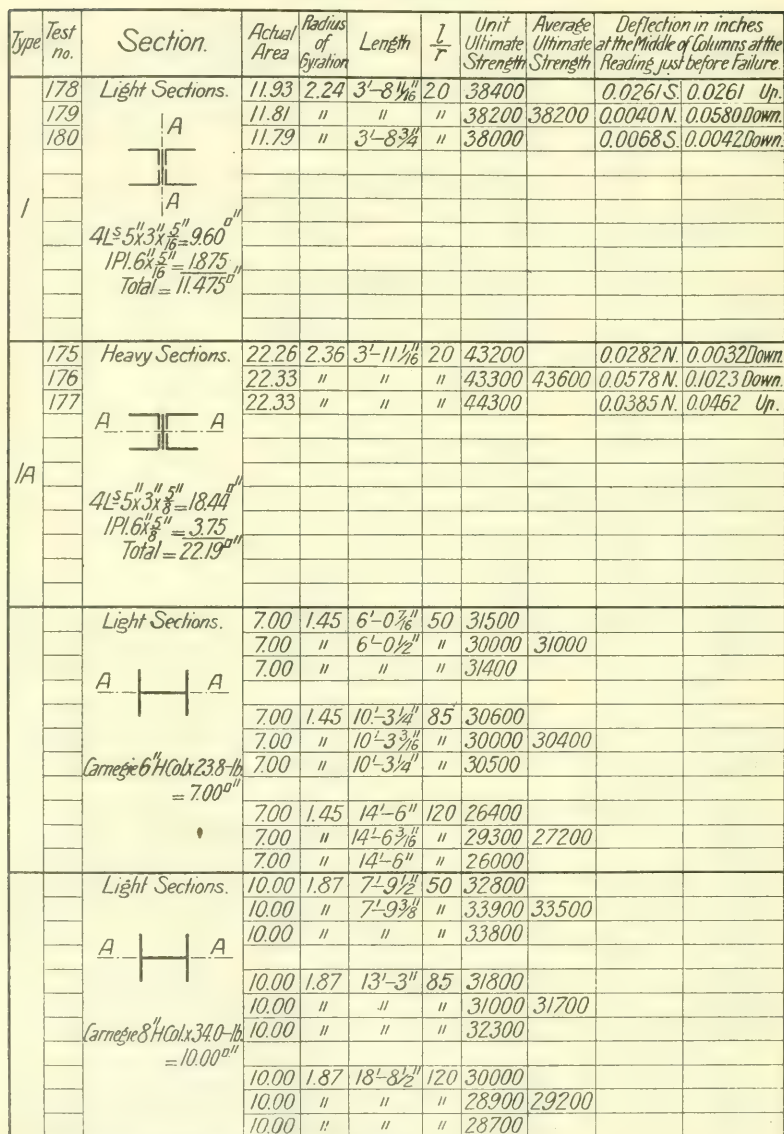 Type Test no. Section. Actual Area Radius of Gyration Length l/r Unit Ultimate Strength Average Ultimate Strength Deflection in inches at the Middle of Columns at the Reading just before Failure.
178 Light Sections. 11.93 2.24 3'-8 11/16" 20 38400 0.0261 S. 0.0261 Up.
179 11.81 " " " 38200 38200 0.0040 N. 0.0580 Down.
180 11.79 " 3'-8¾" " 38000 0.0068 S. 0.0042 Down.
A
A
1
4Ls 5"x3"x5/16" = 9.60□"
1Pl. 6"x5/16" = 1.875
Total = 11.475□"
175 Heavy Sections. 22.26 2.36 3'-11 1/16" 20 43200 0.0282 N. 0.0032 Down.
176 22.33 " " " 43300 43600 0.0578 N. 0.1023 Down.
177 22.33 " " " 44300 0.0385 N. 0.0462 Up.
A A
1A
4Ls 5"x3"x5/8" = 18.44□"
1Pl. 6"x5/8" = 3.75
Total = 22.19□"
Light Sections. 7.00 1.45 6'-0 7/16" 50 31500
7.00 " 6'-0½" " 30000 31000
7.00 " " " 31400
A A
7.00 1.45 10'-3¼" 85 30600
7.00 " 10'-3 3/16" " 30000 30400
Carnegie 6" H Col. x 23.8-lb. 7.00 " 10'-3¼" " 30500
= 7.00□"
7.00 1.45 14'-6" 120 26400
7.00 " 14'-6 3/16" " 29300 27200
7.00 " 14'-6" " 26000
Light Sections. 10.00 1.87 7'-9½" 50 32800
10.00 " 7'-9⅜" " 33900 33500
10.00 " " " 33800
A A
10.00 1.87 13'-3" 85 31800
10.00 " " " 31000 31700
Carnegie 8" H Col. x 34.0-lb. 10.00 " " " 32300
= 10.00□"
10.00 1.87 18'-8½" 120 30000
10.00 " " " 28900 29200
10.00 " " " 28700